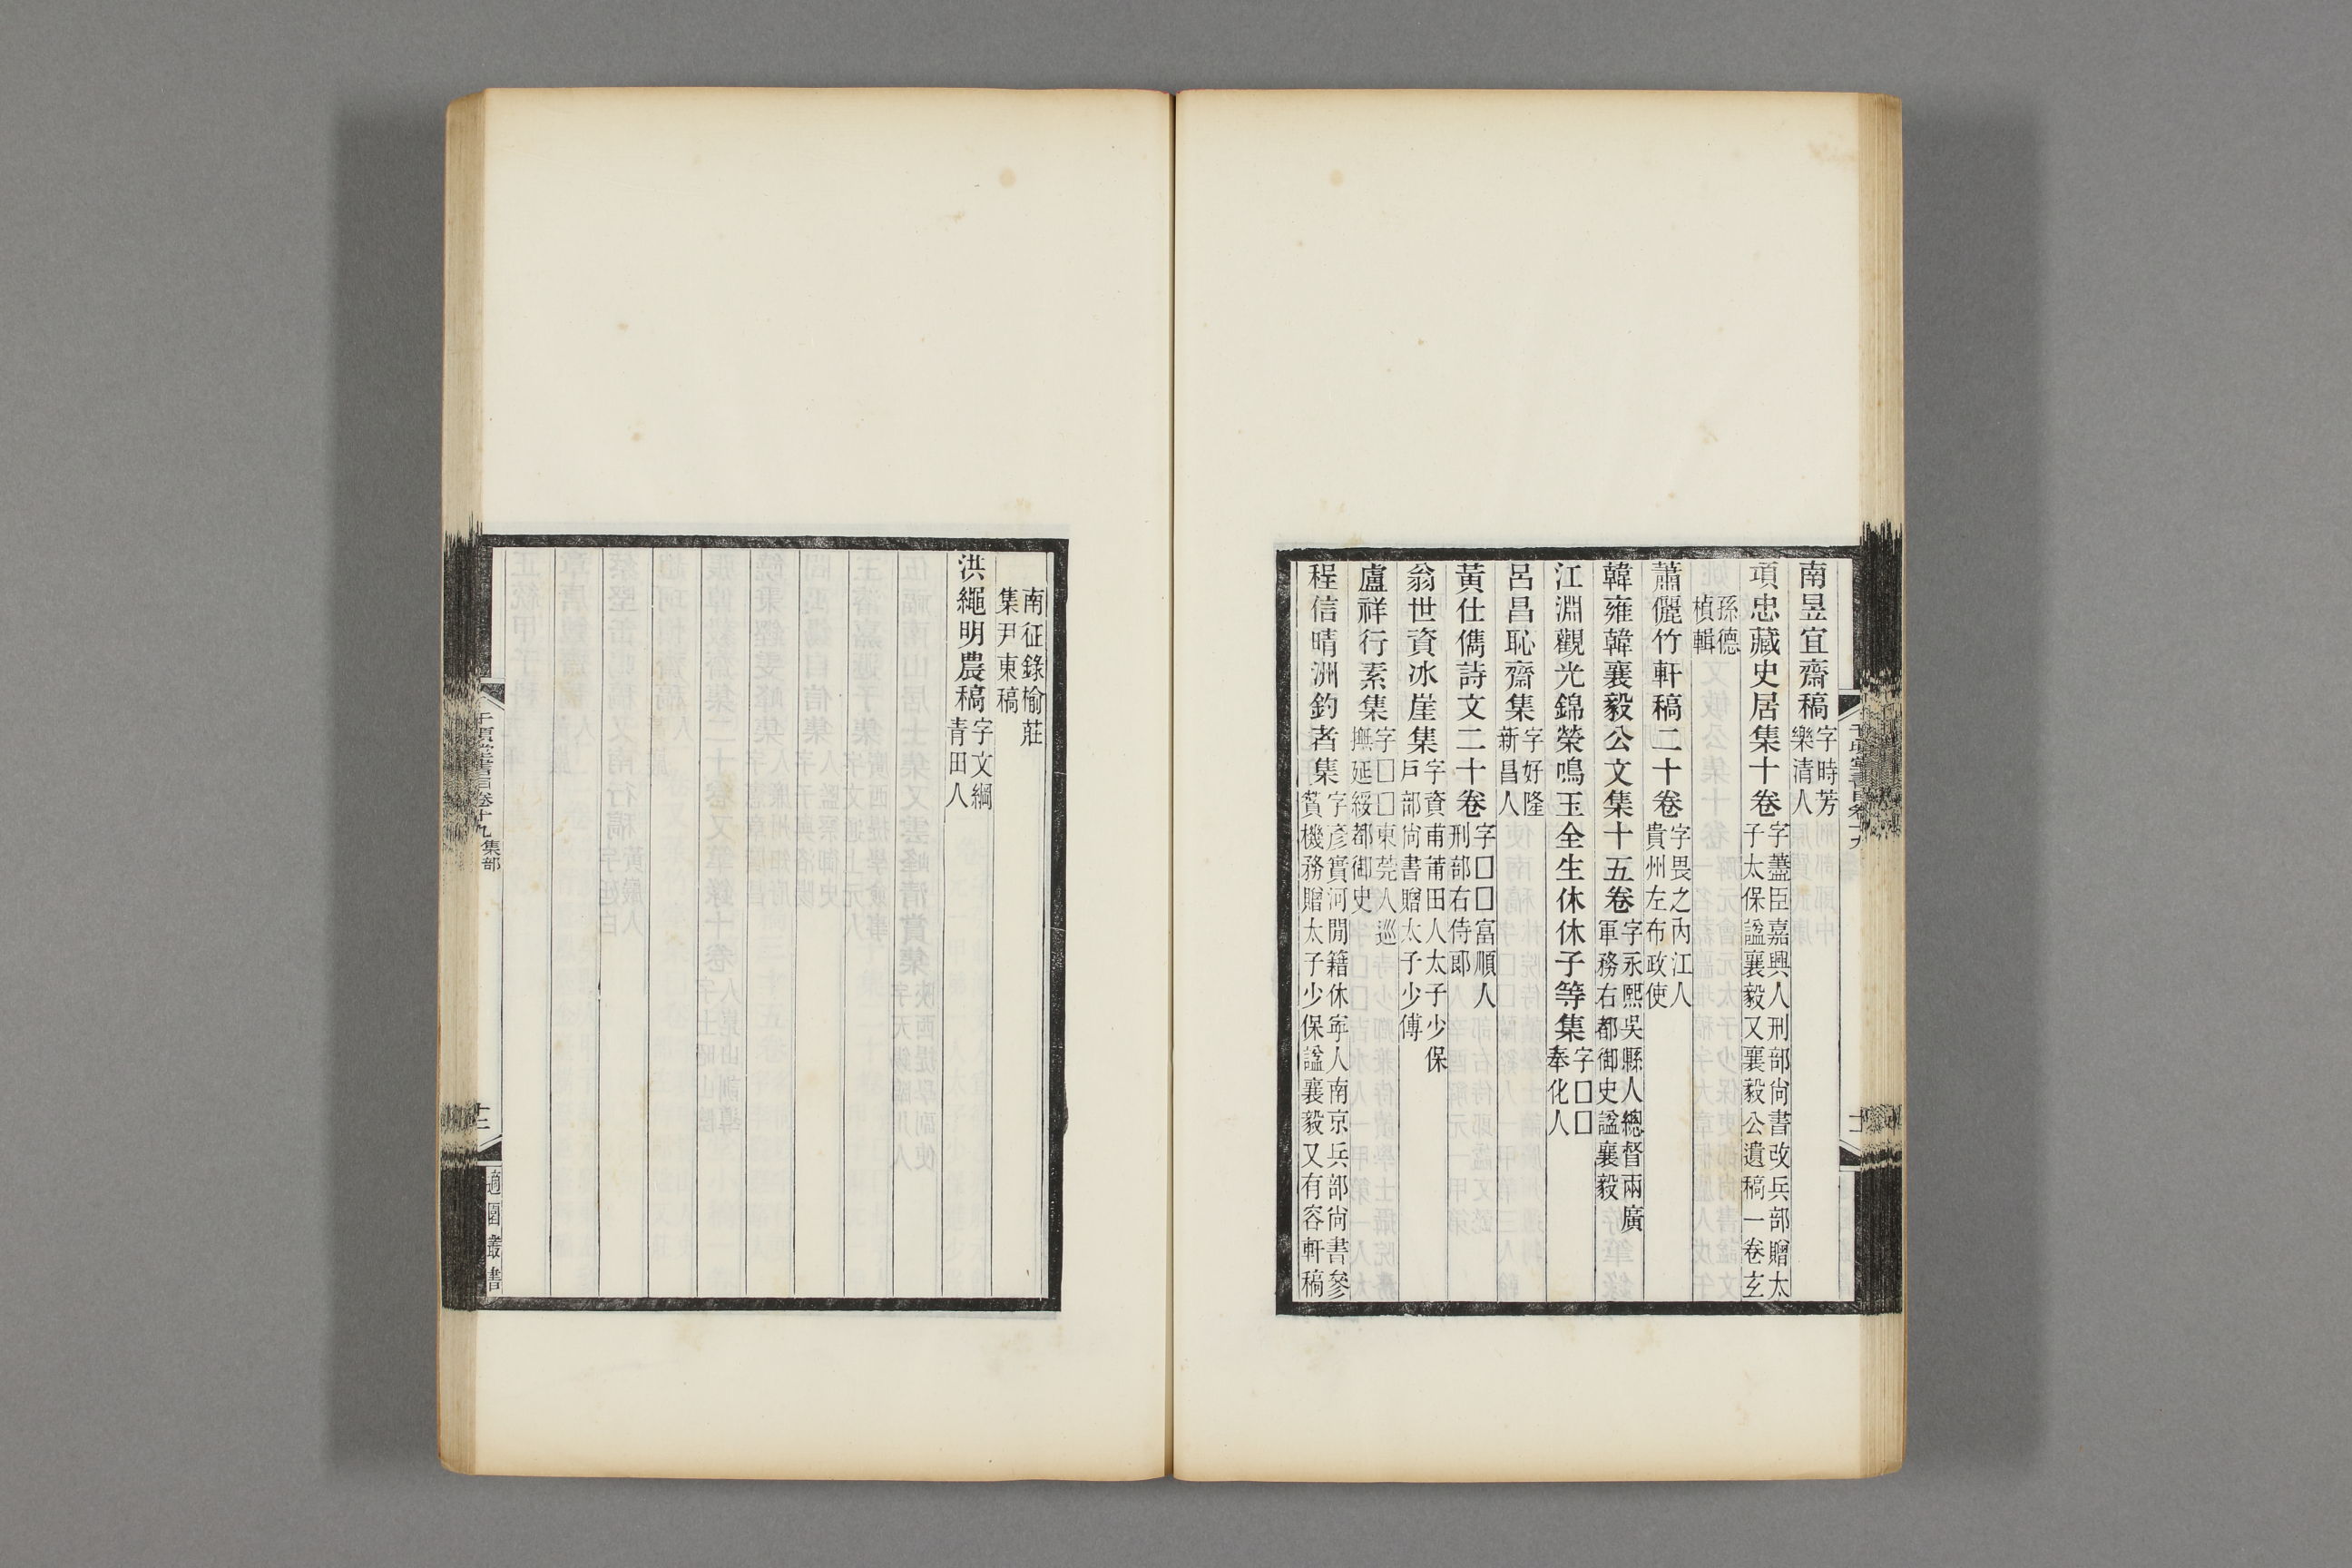 南昱宜齋稿字時芳樂清人
項忠藏史居集十卷字藎臣嘉興人刑部尙書改兵部贈太子太保諡襄毅又襄毅公遺稿一卷玄
孫德楨輯
蕭儼竹軒稿二十卷字畏之內江人貴州左布政使
韓雍韓襄毅公文集十五卷字永熙吳縣人總督兩廣軍務右都御史諡襄毅
江淵觀光錦榮鳴玉全生休休子等集字□□奉化人
呂昌恥齋集字好隆新昌人
黃仕儁詩文二十卷字□□富順人刑部右侍郎
翁世資冰崖集字資甫莆田人太子少保戶部尙書贈太子少傅
盧祥行素集字□□東莞人巡撫延綏都御史
程信晴洲釣者集字彥實河閒籍休寧人南京兵部尙書參贊機務贈太子少保諡襄毅又有容軒稿
南征錄榆莊集尹東稿
洪繩明農稿字文綱青田人
千頃堂書目卷十九集部
十二
適園叢書